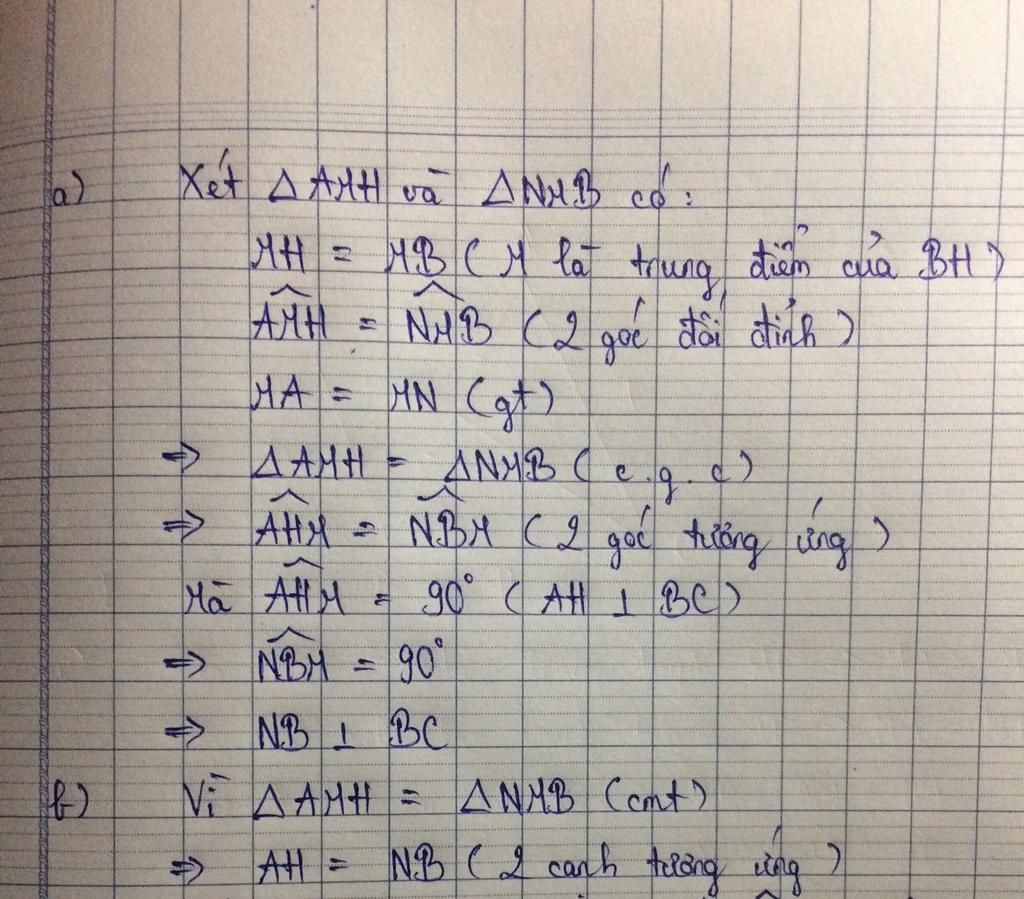 a) Xét △AMH và △NMB có:
MH = MB (M là trung điểm của BH)
\widehat{AMH} = \widehat{NMB} (2 góc đối đỉnh)
MA = MN (gt)
⇒ △AMH = △NMB (c.g.c)
⇒ \widehat{AHM} = \widehat{NBM} (2 góc tương ứng)
Mà \widehat{AHM} = 90° (AH ⊥ BC)
⇒ \widehat{NBM} = 90°
⇒ NB ⊥ BC
b) Vì △AMH = △NMB (cmt)
⇒ AH = NB (2 cạnh tương ứng)